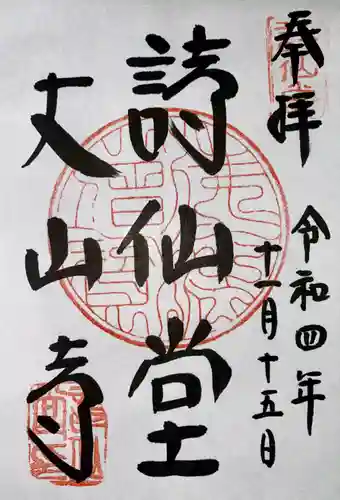 奉拝
令和四年
十一月十五日
詩仙堂
丈山寺